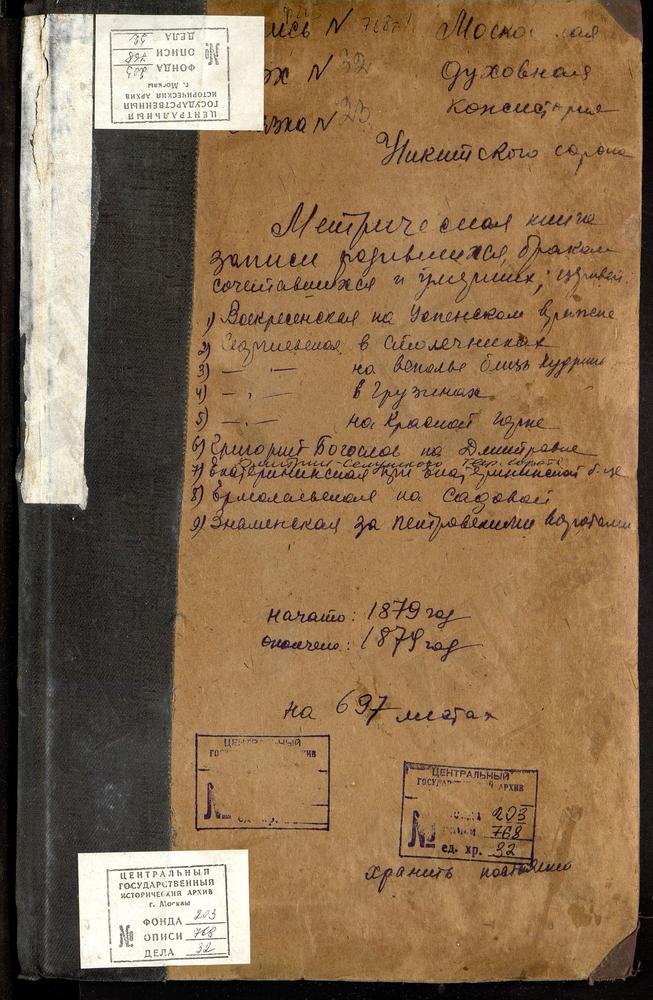 №
ФОНДА 203
ОПИСИ 768
ДЕЛА 32
ЦЕНТРАЛЬНЫЙ
ГОСУДАРСТВЕННЫЙ
ИСТОРИЧЕСКИЙ АРХИВ
г. Москвы
ись № 768
№ 32
№ 23
Моско ская
Духовная
Консистория
Никитского сорока
Метрическая книга
записи родившихся, браком
сочетавшихся и умерших, церквей
1) Воскресенская на Успенском вражке
2) Георгиевская в
3) — " — на всполье близ Кудрин
4) — " — в Грузинах
5) — " — на Красной горке
6) Григорий Богослов на Дмитровке
7) Екатерининская при Екатерининской б-це
8) Ермолаевская на Садовой
9) Знаменская за Петровскими воротами
начато: 1879 год
окончено: 1879 год
на 697 листах
ЦЕНТРАЛЬНЫЙ
№
ЦЕНТРАЛЬНЫЙ
АРХИВ
203
768
№ ед. хр. 32
хранить постоянно
ЦЕНТРАЛЬНЫЙ
ГОСУДАРСТВЕННЫЙ
ИСТОРИЧЕСКИЙ АРХИВ
г. Москвы
№
ФОНДА 203
ОПИСИ 768
ДЕЛА 32